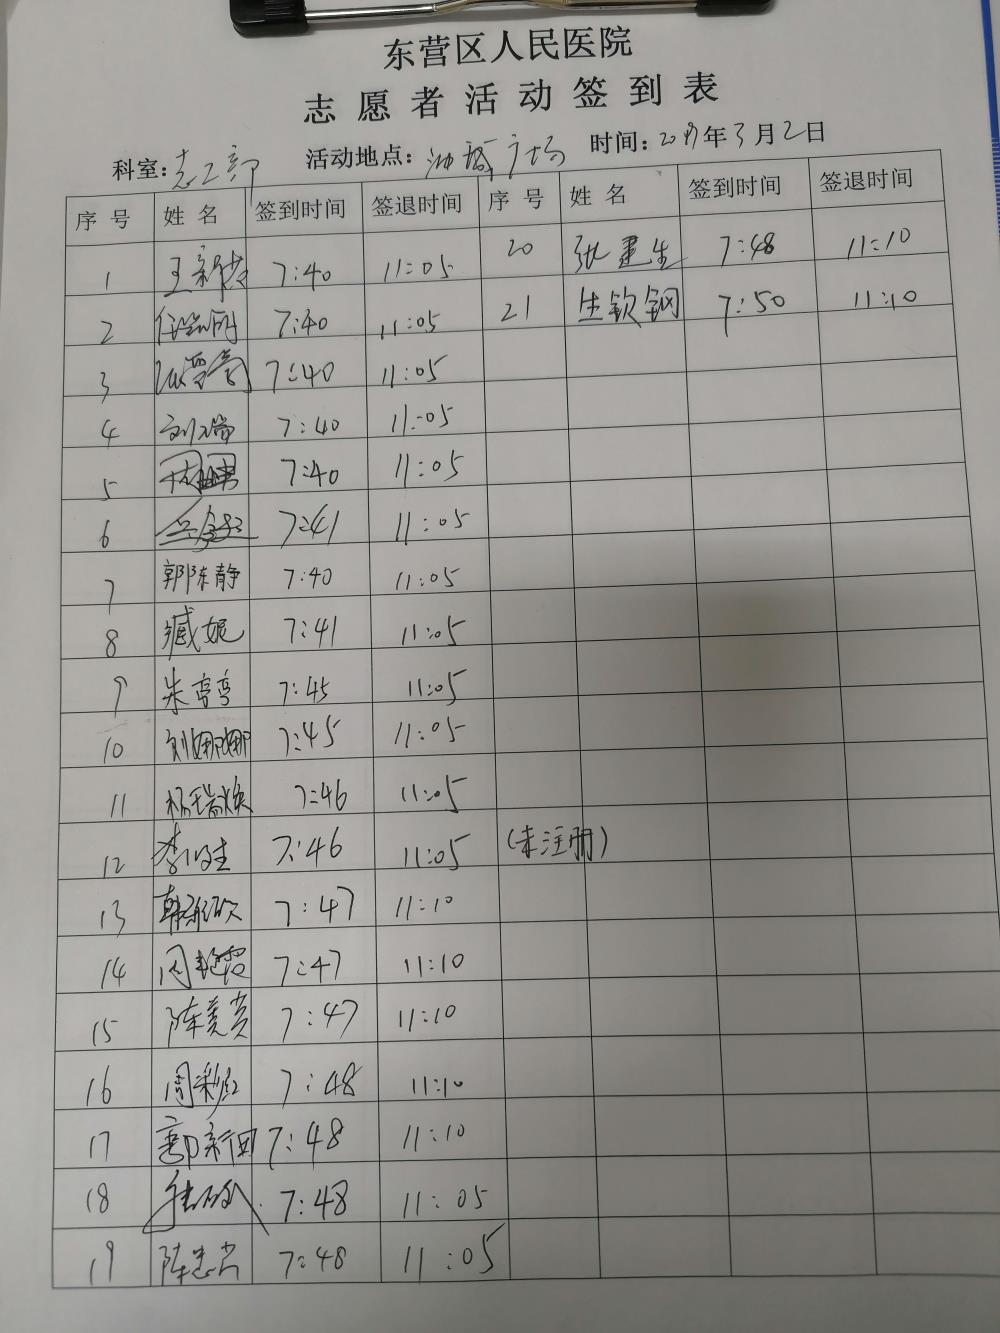 东营区人民医院
志愿者活动签到表
科室:志工部 活动地点: 广场 时间:2019年3月2日
序号 姓名 签到时间 签退时间 序号 姓名 签到时间 签退时间
1 王新 7:40 11:05 20 张建生 7:48 11:10
2 7:40 11:05 21 生钦钢 7:50 11:10
3 7:40 11:05
4 刘瑞 7:40 11:05
5 7:40 11:05
6 7:41 11:05
7 郭陈静 7:40 11:05
8 臧妮 7:41 11:05
9 朱亭亭 7:45 11:05
10 刘娜娜 7:45 11:05
11 杨瑞焕 7:46 11:05
12 李 生 7:46 11:05 (未注册)
13 韩 7:47 11:10
14 周艳霞 7:47 11:10
15 陈 7:47 11:10
16 周彩红 7:48 11:10
17 新田 7:48 11:10
18 7:48 11:05
19 陈志 7:48 11:05